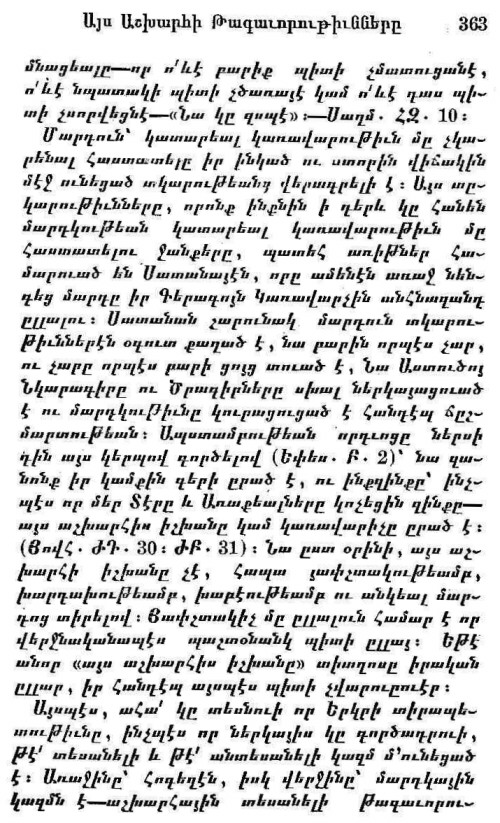 Այս Աշխարհի Թագաւորութիւնները 363
մնացեալը—որ ո՛ևէ բարիք պիտի չմատուցանէ,
ո՛ևէ նպատակի պիտի չծառայէ կամ ո՛ևէ դաս պի-
տի չսորվեցնէ—«Նա կը զսպէ»։—Սաղմ. ՀԶ. 10։
Մարդուն՝ կատարեալ կառավարութիւն մը չկա-
րենալ հաստատելը իր ինկած ու ստորին վիճակին
մէջ ունեցած տկարութեանց վերագրելի է։ Այս տը-
կարութիւնները, որոնք ինքնին ի դերև կը հանեն
մարդկութեան կատարեալ կառավարութիւն մը
հաստատելու ջանքերը, պատեհ առիթներ հա-
մարուած են Սատանայէն, որը ամենէն առաջ նեն-
գեց մարդը իր Գերագոյն Կառավարչին անհնազանդ
ըլլալու։ Սատանան շարունակ մարդուն տկարու-
թիւններէն օգուտ քաղած է, նա բարին որպէս չար,
ու չարը որպէս բարի ցոյց տուած է, Նա Աստուծոյ
Նկարագիրը ու Ծրագիրները սխալ ներկայացուած
է ու մարդկութիւնը կուրացուցած է հանդէպ ճըշ-
մարտութեան։ Ապստամբութեան որդւոցը ներսի
դին այս կերպով գործելով (Եփես. Բ. 2)՝ նա զա-
նոնք իր կամքին գերի ըրած է, ու ինքզինքը՝ ինչ-
պէս որ մեր Տէրը և Առաքեալները կոչեցին զինքը—
այս աշխարհիս իշխանը կամ կառավարիչը ըրած է։
(Յովհ. ԺԴ. 30։ ԺԲ. 31)։ Նա ըստ օրինի, այս աշ-
խարհի իշխանը չէ, հապա յափշտակութեամբ,
խարդախութեամբ, խաբէութեամբ ու անկեալ մար-
դոց տիրելով։ Յափշտակիչ մը ըլլալուն համար է որ
վերջնականապէս պաշտօնանկ պիտի ըլլայ։ Եթէ
անոր «այս աշխարհիս իշխանը» տիտղոսը իրական
ըլլար, իր հանդէպ այսպէս պիտի չվարուըուէր։
Այսպէս, ահա՛ կը տեսնուի որ Երկրի տիրապե-
տութիւնը, ինչպէս որ ներկայիս կը գործադրուի,
թէ՛ տեսանելի և թէ՛ անտեսանելի կազմ մ՚ունեցած
է։ Առաջինը՝ հոգեղէն, իսկ վերջինը՝ մարդկային
կազմն է—աշխարհային տեսանելի Թագաւորու-